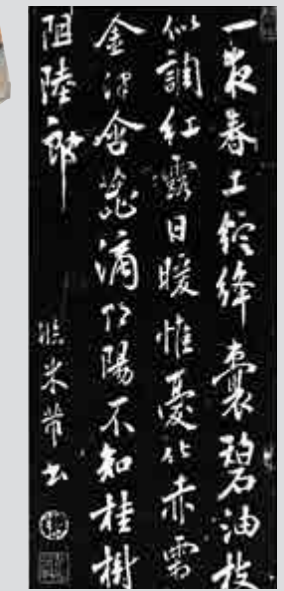 一夜春工綻絳囊碧油枝
似調紅露日暖惟憂化赤霜
金津含蕊滴陽不知桂樹
阻陸郎
臨米芾書